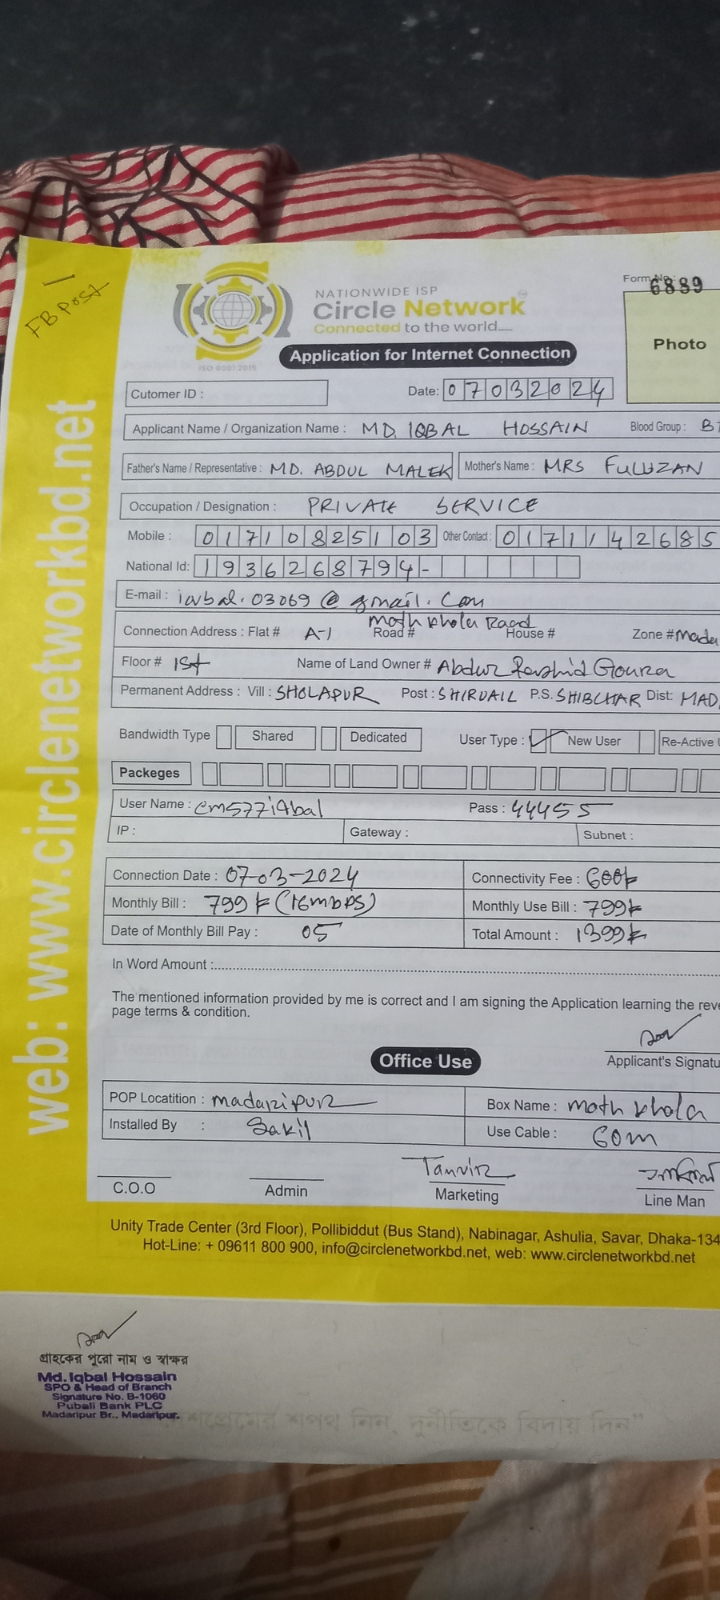 FB Post
NATIONWIDE ISP
Circle Network
Connected to the world....
ISO 9001:2015
Form No.: 6889
Photo
Application for Internet Connection
Cutomer ID :
Date: 07032024
Applicant Name / Organization Name : MD. IQBAL HOSSAIN Blood Group : B
Father's Name / Representative : MD. ABDUL MALEK Mother's Name : MRS FULUZAN
Occupation / Designation : PRIVATE SERVICE
Mobile : 01710825103 Other Contact : 0171142685
National Id: 1936268794-
E-mail : iqbal.03069@gmail.com
Connection Address : Flat # A-1 Road # moth khola Road House # Zone # Mada
Floor # 1st Name of Land Owner # Abdur Rashid Goura
Permanent Address : Vill : SHOLAPUR Post : SHIRUAIL P.S. SHIBCHAR Dist: MAD
Bandwidth Type Shared Dedicated User Type : New User Re-Active
Packeges
User Name : cm577iqbal Pass : 44455
IP : Gateway : Subnet :
Connection Date : 07-03-2024 Connectivity Fee : 600
Monthly Bill : 799 (16mbps) Monthly Use Bill : 799
Date of Monthly Bill Pay : 05 Total Amount : 1399
In Word Amount :
The mentioned information provided by me is correct and I am signing the Application learning the reve
page terms & condition.
Applicant's Signatu
Office Use
POP Locatition : madaripur Box Name : moth khola
Installed By : Sakil Use Cable : 60m
Tanvir
C.O.O Admin Marketing Line Man
Unity Trade Center (3rd Floor), Pollibiddut (Bus Stand), Nabinagar, Ashulia, Savar, Dhaka-134
Hot-Line: + 09611 800 900, info@circlenetworkbd.net, web: www.circlenetworkbd.net
web: www.circlenetworkbd.net
গ্রাহকের পুরো নাম ও স্বাক্ষর
Md. Iqbal Hossain
SPO & Head of Branch
Signature No. B-1060
Pubali Bank PLC
Madaripur Br., Madaripur.
শপ্রেমের শপথ নিন, দুর্নীতিকে বিদায় দিন”